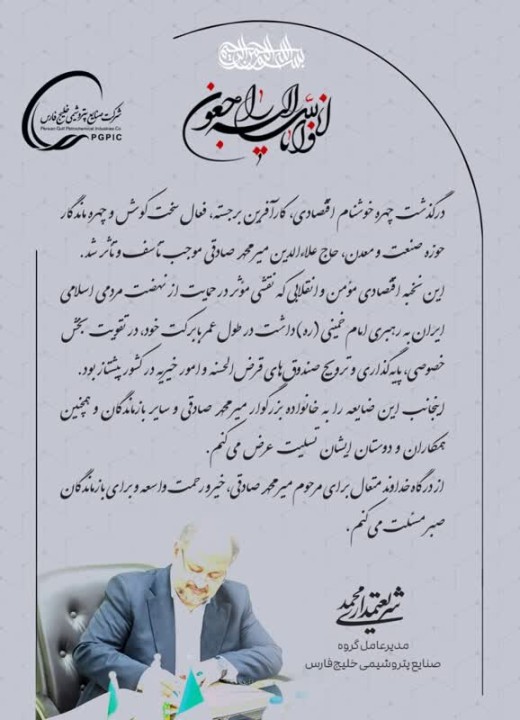 بسم الله الرحمن الرحیم
انا لله و انا الیه راجعون
شرکت صنایع پتروشیمی خلیج فارس
Persian Gulf Petrochemical Industries Co
PGPIC
درگذشت چهره خوشنام اقتصادی، کارآفرین برجسته، فعال سخت‌کوش و چهره ماندگار
حوزه صنعت و معدن، حاج علاءالدین میرمحمد صادقی موجب تاسف و تأثر شد.
این نخبه اقتصادی مؤمن و انقلابی که نقشی مؤثر در حمایت از نهضت مردمی اسلامی
ایران به رهبری امام خمینی (ره) داشت در طول عمر بابرکت خود، در تقویت بخش
خصوصی، پایه‌گذاری و ترویج صندوق‌های قرض‌الحسنه و امور خیریه در کشور پیشتاز بود.
اینجانب این ضایعه را به خانواده بزرگوار میرمحمد صادقی و سایر بازماندگان و همچنین
همکاران و دوستان ایشان تسلیت عرض می‌کنم.
از درگاه خداوند متعال برای مرحوم میرمحمد صادقی، خیر و رحمت واسعه و برای بازماندگان
صبر مسئلت می‌کنم.
شریعتمداری محمدی
مدیرعامل گروه
صنایع پتروشیمی خلیج‌فارس